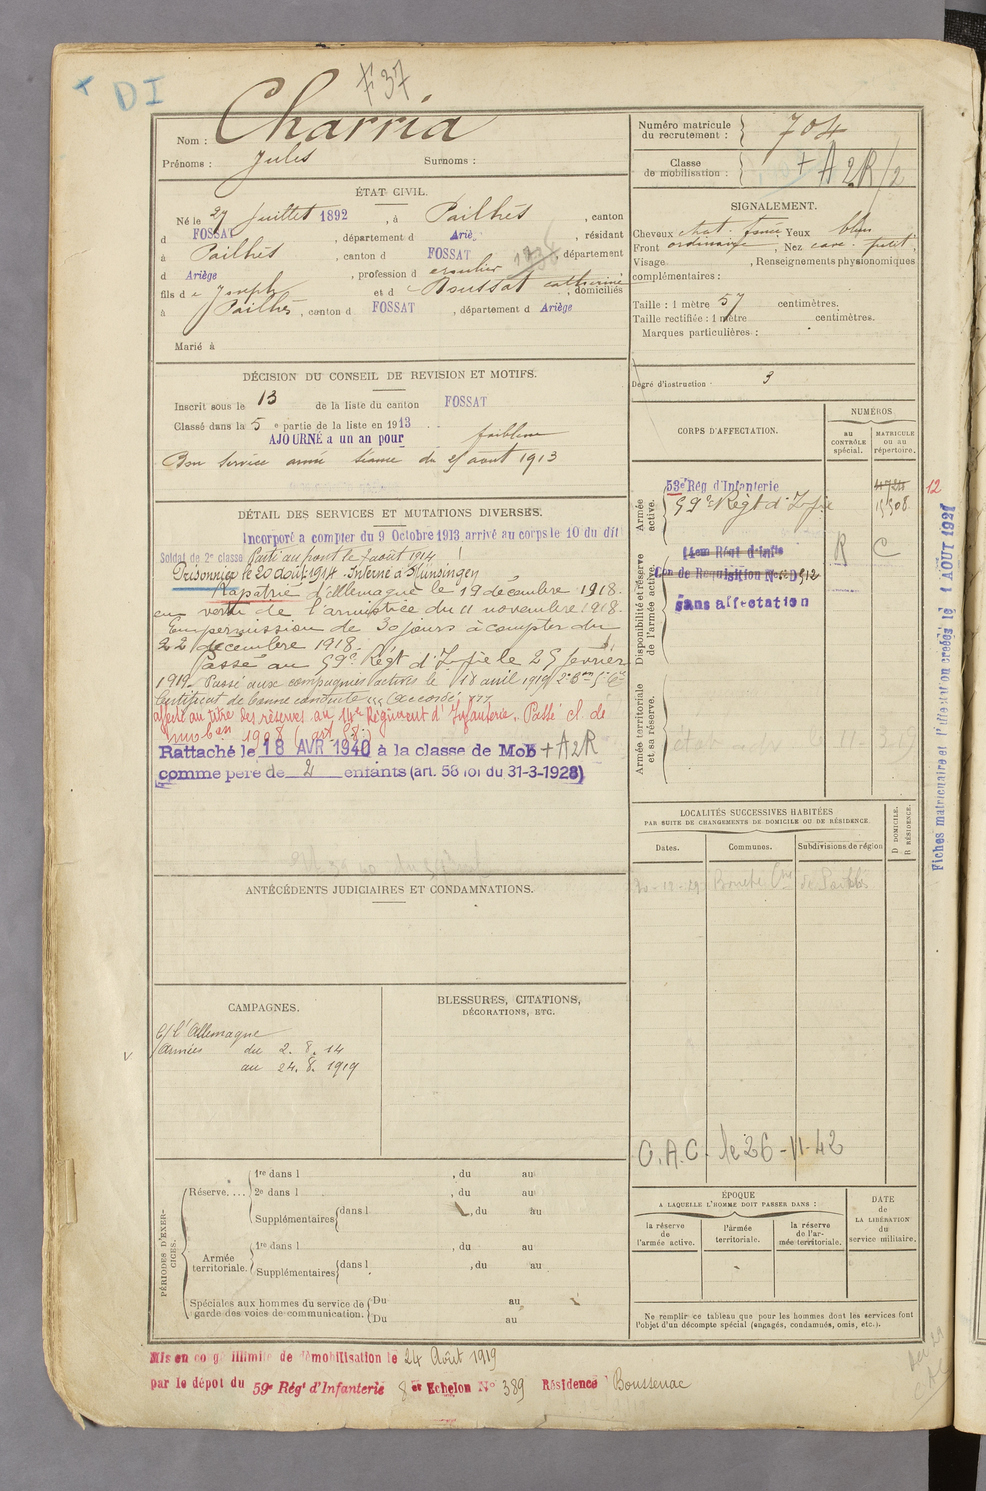 DI
F 37
Nom : Charria
Prénoms : Jules Surnoms :
ÉTAT CIVIL.
Né le 27 Juillet 1892, à Pailhès, canton
d FOSSAT, département d Ariège, résidant
à Pailhès, canton d FOSSAT, département
d Ariège, profession d
fils de Joseph et d Boussat Catherine, domiciliés
à Pailhès, canton d FOSSAT, département d Ariège
Marié à
DÉCISION DU CONSEIL DE REVISION ET MOTIFS.
Inscrit sous le 13 de la liste du canton FOSSAT
Classé dans la 5 e partie de la liste en 1913
AJOURNÉ a un an pour faiblesse
Bon service armé séance du août 1913
DÉTAIL DES SERVICES ET MUTATIONS DIVERSES.
Incorporé a compter du 9 Octobre 1913 arrivé au corps le 10 du dit
Soldat de 2e classe Parti au front le 7 août 1914
Prisonnier le 20 août 1914. Interné à Münsingen
Rapatrié d'Allemagne le 19 décembre 1918.
en vertu de l'armistice du 11 novembre 1918.
En permission de 30 jours à compter du
22 décembre 1918.
Passé au 59e Régt d'Infie le 25 février
1919. Passé aux compagnies actives le 18 avril 1919
Certificat de bonne conduite "Accordé"
affecté au titre des réserves au 14e Régiment d'Infanterie. Passé cl. de
mob on 1908 (art 58.)
Rattaché le 18 AVR 1940 à la classe de Mob + A2R
comme père de 2 enfants (art. 58 loi du 31-3-1928)
ANTÉCÉDENTS JUDICIAIRES ET CONDAMNATIONS.
CAMPAGNES.
C/ l'Allemagne
Armées du 2. 8. 14
au 24. 8. 1919
BLESSURES, CITATIONS,
DÉCORATIONS, ETC.
PÉRIODES D'EXERCICES.
Réserve.... 1re dans l , du au
2e dans l , du au
Supplémentaires dans l , du au
Armée territoriale. 1re dans l , du au
Supplémentaires dans l , du au
Spéciales aux hommes du service de garde des voies de communication. Du au
Du au
Mis en congé illimité de démobilisation le 24 Août 1919
par le dépot du 59e Régt d'Infanterie 8e Echelon N° 389 Résidence Boussenac
Numéro matricule du recrutement : 704
Classe de mobilisation : + A2R/2
SIGNALEMENT.
Cheveux chat. foncé Yeux bleu
Front ordinaire, Nez cave. petit
Visage , Renseignements physionomiques
complémentaires :
Taille : 1 mètre 57 centimètres.
Taille rectifiée : 1 mètre centimètres.
Marques particulières :
Degré d'instruction 3
CORPS D'AFFECTATION.
NUMÉROS
au CONTRÔLE spécial.
MATRICULE ou au répertoire.
Armée active.
53e Rég d'Infanterie
59e Régt d'Infie
12
Disponibilité et réserve de l'armée active.
14em Régt d'Infie
R C
Con de Requisition
sans affectation
Armée territoriale et sa réserve.
LOCALITÉS SUCCESSIVES HABITÉES
PAR SUITE DE CHANGEMENTS DE DOMICILE OU DE RÉSIDENCE.
Dates.
Communes.
Subdivisions de région
D DOMICILE.
R RÉSIDENCE.
C.A.C. le 26-11-42
ÉPOQUE
A LAQUELLE L'HOMME DOIT PASSER DANS :
la réserve de l'armée active.
l'armée territoriale.
la réserve de l'armée territoriale.
DATE de LA LIBÉRATION du service militaire.
Ne remplir ce tableau que pour les hommes dont les services font
l'objet d'un décompte spécial (engagés, condamnés, omis, etc.).
Fiches matriculaire et d'affectation créées le 1 AOUT 1927